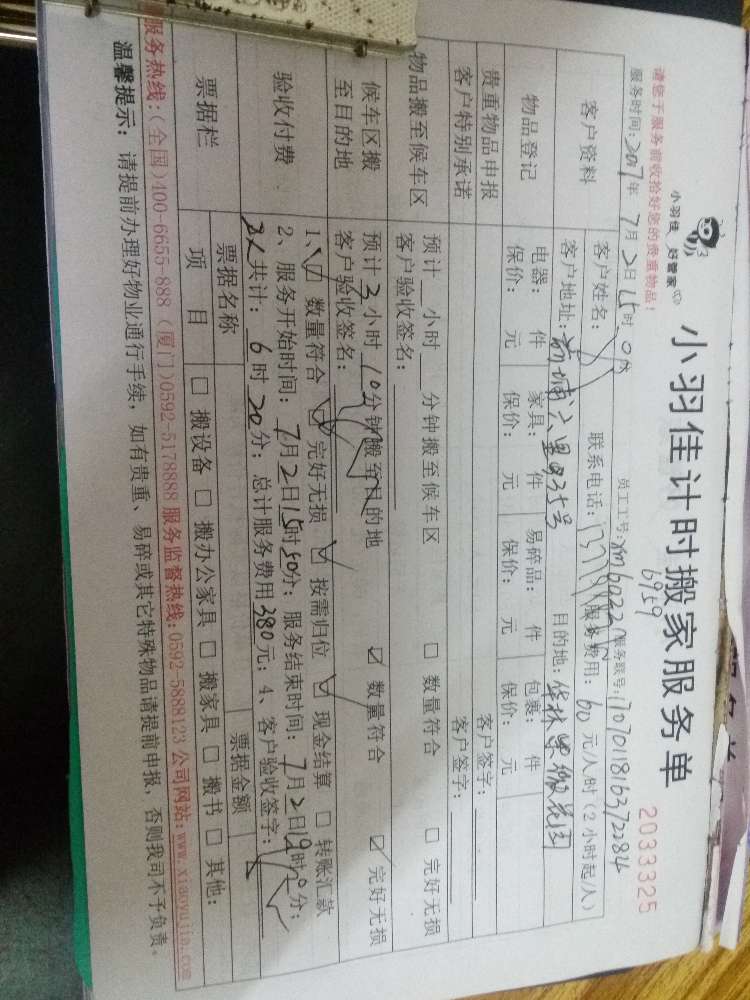 小羽佳 好管家
小羽佳计时搬家服务单
2033325
请您于服务前收拾好您的贵重物品！
员工工号：xm6022 服务联号：1707011816372284
6959
服务时间：2017年7月2日15时0分
客户资料
客户姓名： 联系电话： 服务费用：60元/人时（2小时起/人）
客户地址：前埔六里935号 目的地：华林紫薇花园
物品登记
电器： 件 家具： 件 易碎品： 件 包裹： 件
保价： 元 保价： 元 保价： 元 保价： 元
贵重物品申报 客户签字：
客户特别承诺 客户签字：
物品搬至候车区
预计__小时__分钟搬至候车区 □ 数量符合 □ 完好无损
客户验收签名：
候车区搬至目的地
预计3小时10分钟搬至目的地 ☑ 数量符合 ☑ 完好无损
客户验收签名：
验收付费
1、☑ 数量符合 ☑ 完好无损 ☑ 按需归位 ☑ 现金结算 □ 转账汇款
2、服务开始时间：7月2日15时50分；服务结束时间：7月2日19时0分；
2人共计：6时20分；总计服务费用380元；4、客户验收签字：
票据栏
票据名称 票据金额
项 目 □ 搬设备 □ 搬办公家具 □ 搬家具 □ 搬书 □ 其他：
服务热线：(全国)400-6655-888 (厦门)0592-5178888 服务监督热线：0592-5888123 公司网站：www.xiaoyujia.com
温馨提示：请提前办理好物业通行手续，如有贵重、易碎或其它特殊物品请提前申报，否则我司不予负责。